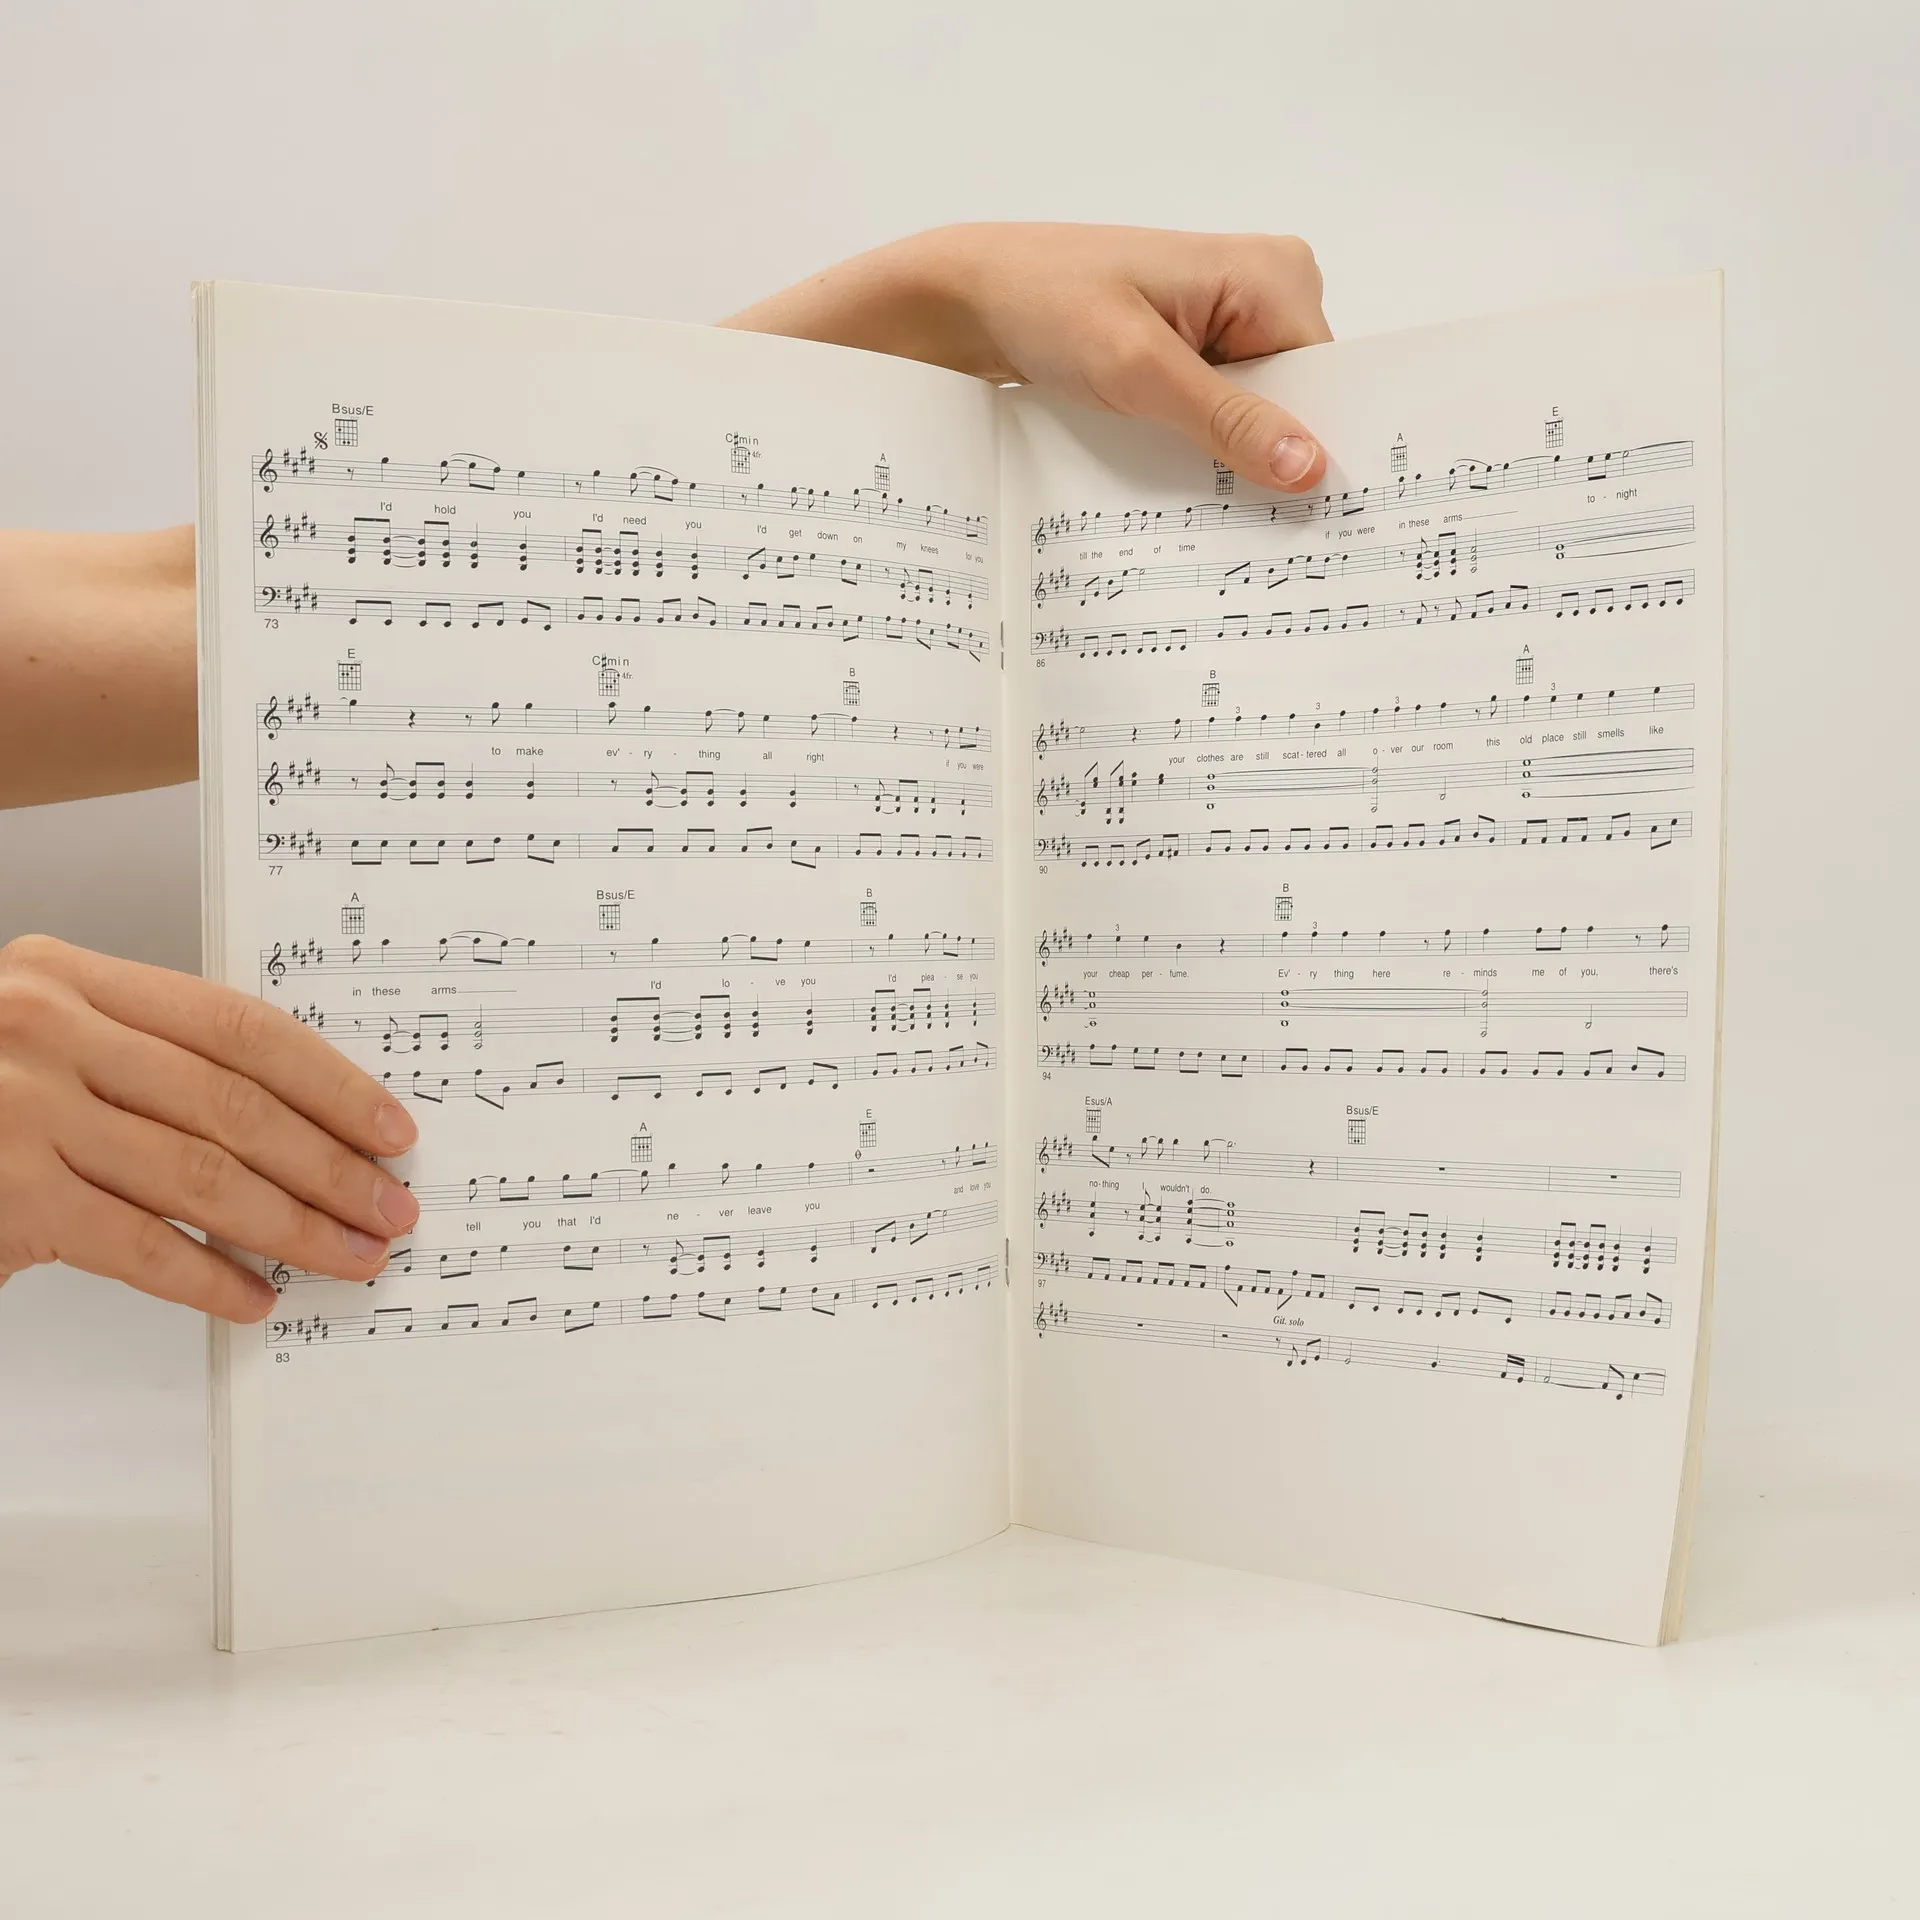 Bsus/E C♯min 4fr. A
I'd hold you I'd need you I'd get down on my knees for you
73
E C♯min 4fr. B
to make ev' - ry - thing all right if you were
77
A Bsus/E B
in these arms I'd lo - ve you I'd plea - se you
A E
tell you that I'd ne - ver leave you and love you
83
A E
till the end of time if you were in these arms to - night
86
B A
3 3 3 3
your clothes are still scat - tered all o - ver our room this old place still smells like
90
B
3 3
your cheap per - fume. Ev' - ry thing here re - minds me of you, there's
94
Esus/A Bsus/E
no - thing I wouldn't do.
97
Git. solo